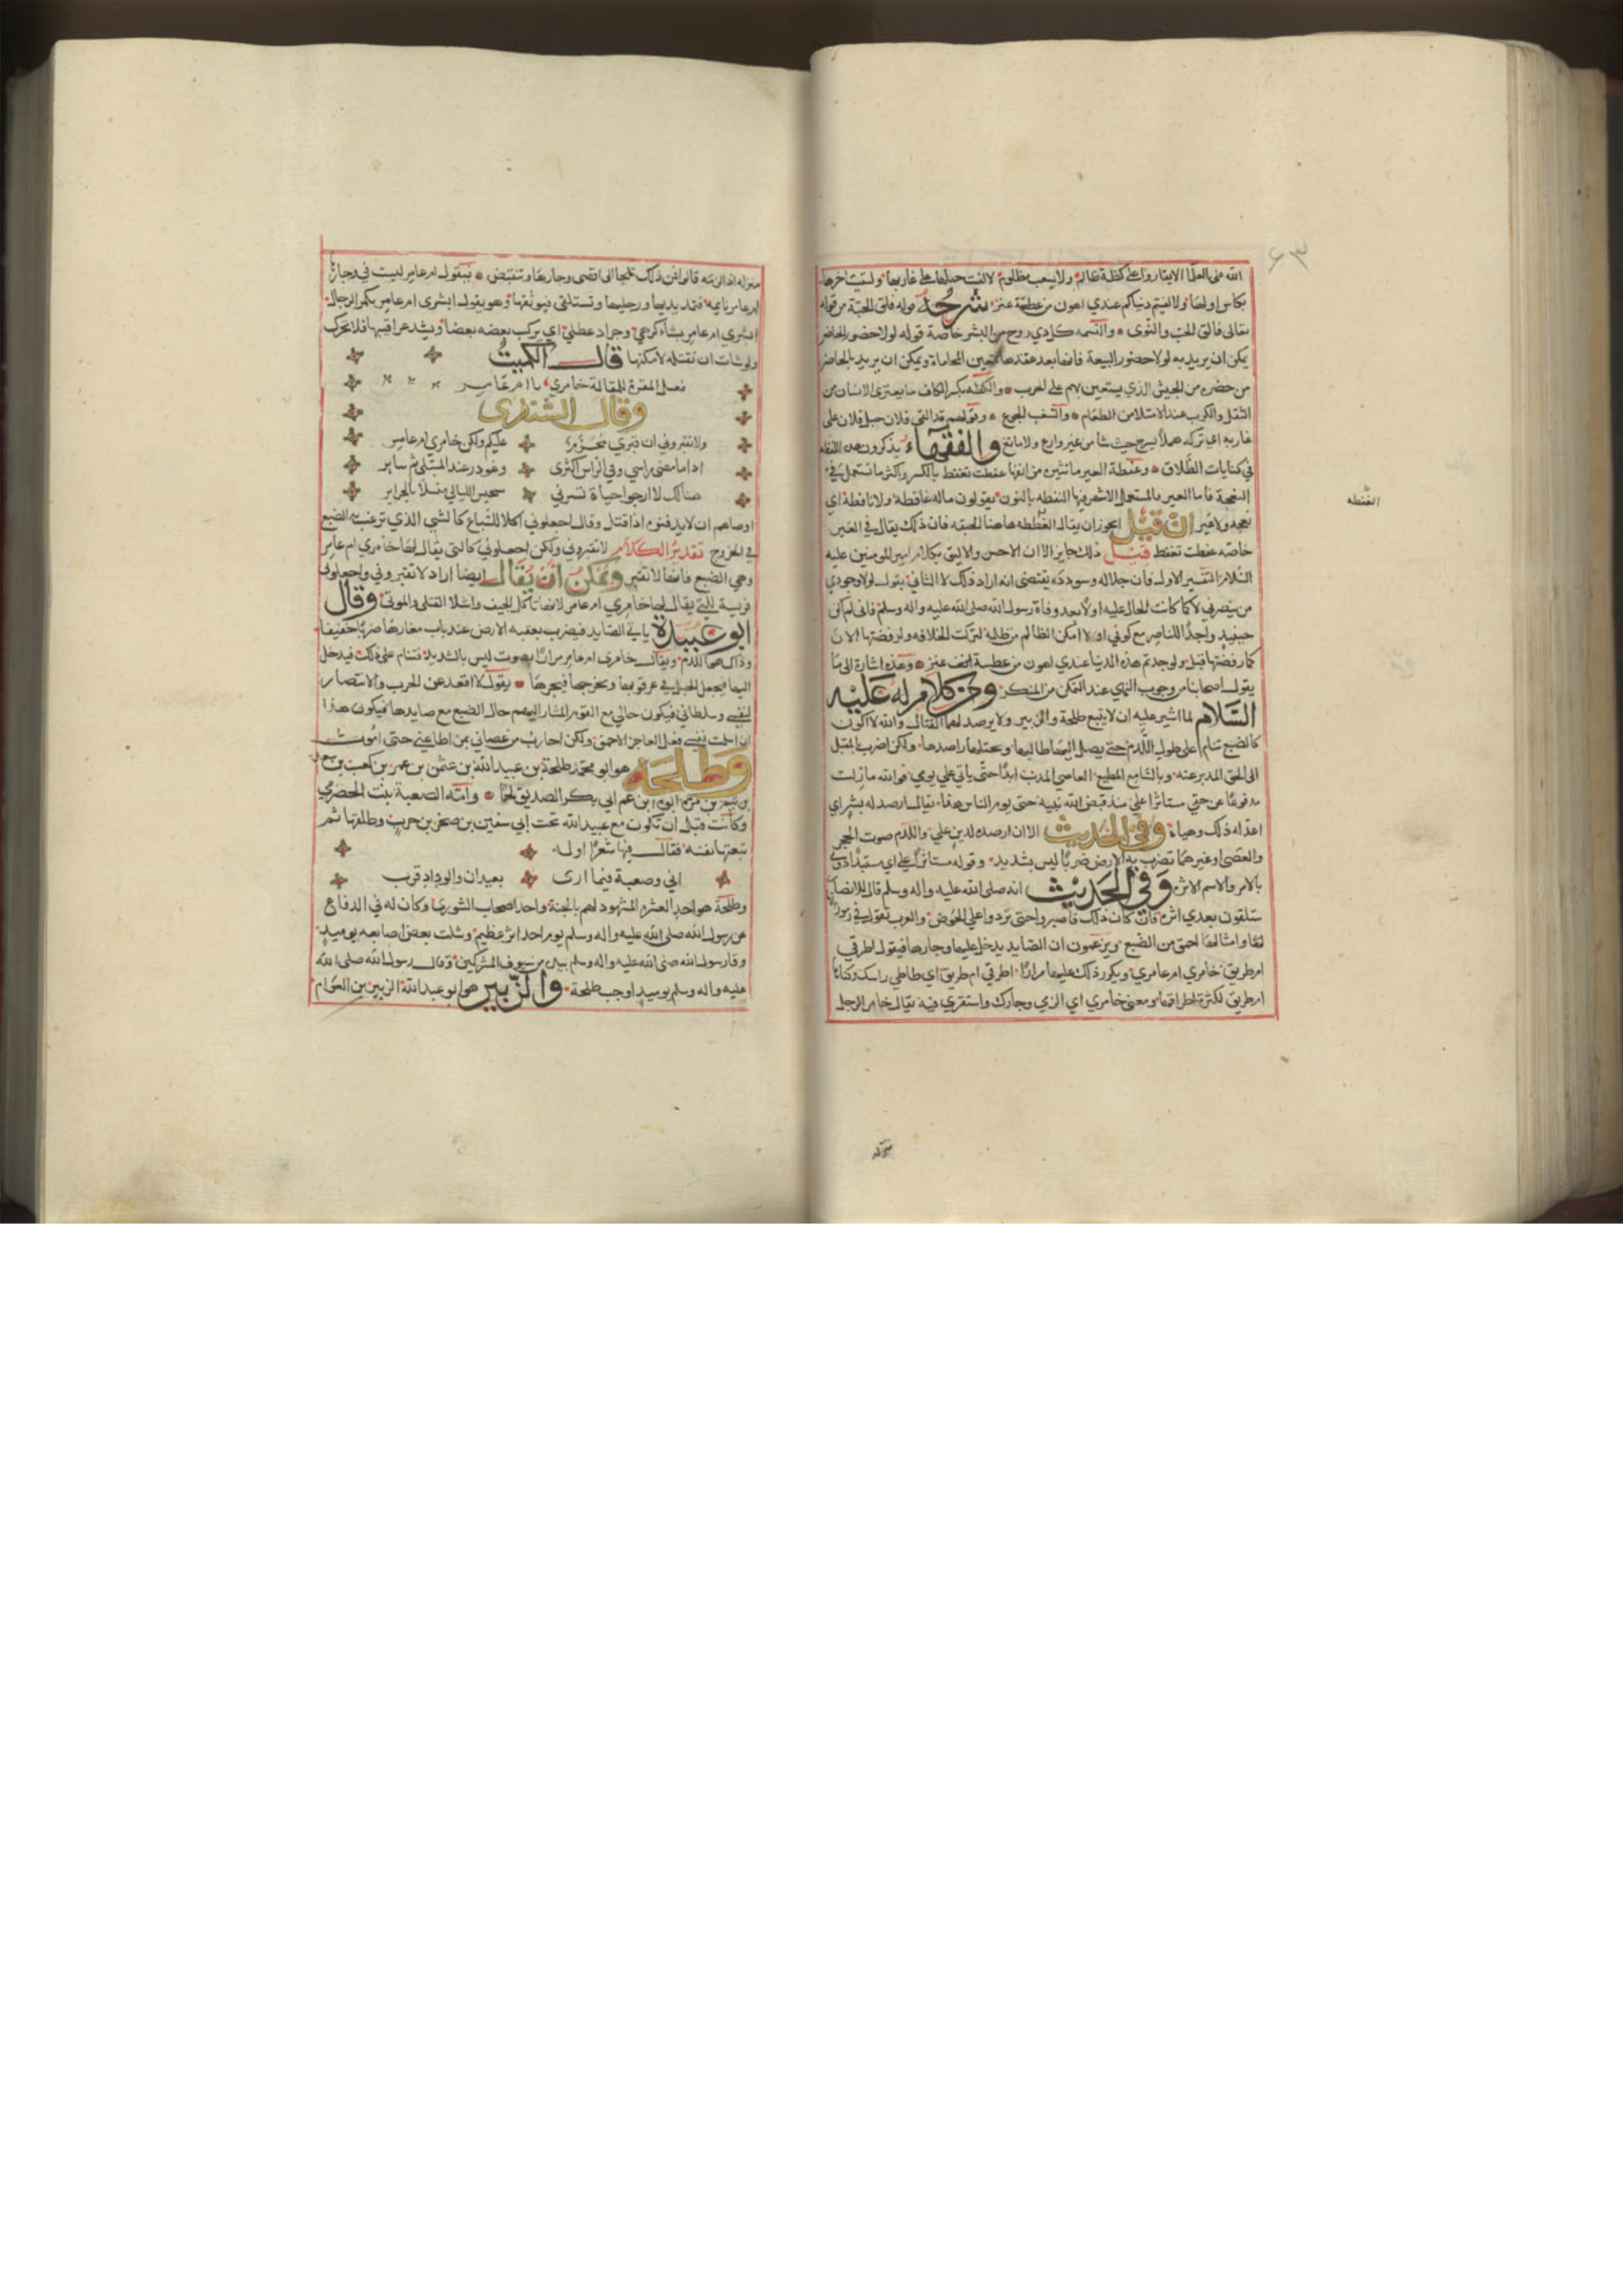 الله على العلما الايقاروا على كظة ظالم ولا سغب مظلوم لالقيت حبلها على غاربها ولسقيت اخرها
بكاس اولها ولالفيتم دنياكم عندي اهون من عطفة عنز شرحه قوله فلق الحبة من قوله
تعالى فالق الحب والنوى والنسمه كل ذي روح من البشر خاصة قوله لولا حضور الحاضر
يمكن ان يريد به لولا حضور البيعة فانها بعد عقدها تتعين المحاماة ويمكن ان يريد بالحاضر
من حضره من الجيش الذي يستعين بهم على الحرب والكظه بكسر الكاف ما يعتري الانسان من
الثقل والكرب عند الامتلا من الطعام والسغب الجوع وقولهم قد القى فلان حبل فلان على
غاربه اي تركه هملا يسرح حيث شا من غير وازع ولا مانع والفقهاء يذكرون هذه اللفظه
في كنايات الطلاق وعفطة العنز ما تنثره من انفها عفطت تعفط بالكسر واكثر ما تستعمل في
النعجة فاما العنز فالمستعمل الاشهر فيها النفطه بالنون يقولون ماله عافطة ولا نافطة اي
نعجه ولا عنز ان قيل ايجوز ان يقال العفطه هاهنا الحبقه فان ذلك يقال في العنز
خاصه عفطت تعفط قيل ذلك جايز الا ان الاحسن والاليق بكلام امير المومنين عليه
السلام التفسير الاول فان جلاله وسودده يقتضي انه اراد ذلك لا الثاني يقول لولا وجودي
من ينصرني لا كما كانت الحال عليه اولا بعد وفاة رسول الله صلى الله عليه واله وسلم فاني لم اكن
حينيذ واجدا للناصر مع كوني اولا امكن الظالم من ظلمه لتركت الخلافه ولرفضتها الان
كما رفضتها قبل ولوجدتم هذه الدنيا عندي اهون من عطسة عنز وهذه اشارة الى ما
يقول اصحابنا من وجوب النهي عند التمكن من المنكر ومن كلام له عليه
السلام لما اشير عليه ان لا يتبع طلحة والزبير ولا يرصد لهما القتال والله لا اكون
كالضبع تنام على طول اللدم حتى يصل اليها طالبها ويختلها راصدها ولكن اضرب بالمقبل
الى الحق المدبر عنه وبالسامع المطيع العاصي المريب ابدا حتى ياتي علي يومي فوالله ما زلت
مدفوعا عن حقي مستاثرا علي منذ قبض الله نبيه حتى يوم الناس هذا يقال ارصد له بشر اي
اعد له ذلك وهياه وفي الحديث الا ان ارصده لدين علي واللدم صوت الحجر
والعصى او غيرهما تضرب به الارض ضربا ليس بشديد وقوله مستاثرا علي اي مستبدا دوني
بالامر والاسم الاثره وفي الحديث انه صلى الله عليه واله وسلم قال للانصار
ستلقون بعدي اثرة فان كان ذلك فاصبروا حتى تردوا علي الحوض والعرب تقول في رموز
لها وامثالها احمق من الضبع ويزعمون ان الصايد يدخل عليها وجارها فيقول اطرقي
ام طريق خامري ام عامري ويكرر ذلك عليها مرارا اطرقي ام طريق اي طاطي راسك وكناها
ام طريق لكثرة اطراقها ومعنى خامري اي الزي وجارك واستقري فيه يقال خامر الرجل
العفطه
منزله
٦٣
منزله اذا لزمه قالوا فمن ذلك تلجا الى اقصى وجارها وتنقبض فيقول ام عامر ليست في وجارها
ام عامر نايمه فتمد يديها ورجليها وتستلقي فيوثقها وهو يقول ابشري ام عامر بكمر الرجال
ابشري ام عامر بشاء كرجي وجراد عظلي اي يركب بعضه بعضا ويشد عراقيبها فلا تتحرك
ولو شات ان تقتله لامكنها قال الكميت
فعل المقرة للمقالة خامري يا ام عامر
وقال الشنفرى
ولا تقبروني ان قبري محرم عليكم ولكن خامري ام عامر
اذا ما مضى راسي وفي الراس اكثري وغودر عند الملتقى ثم ساير
هنالك لا ارجوا حياة تسرني سجيس الليالي مبسلا بالجراير
اوصاهم ان لا يدفنوه اذا قتل وقال اجعلوني اكلا للسباع كالشي الذي ترغب به الضبع
في الخروج تقدير الكلام لا تقبروني ولكن اجعلوني كالتي يقال لها خامري ام عامر
وهي الضبع فانها لا تقبر ويمكن ان يقال ايضا اراد لا تقبروني واجعلوني
فريسة للتي يقال لها خامري ام عامر لانها تاكل الجيف واشلا القتلى والموتى وقال
ابو عبيدة ياتي الصايد فيضرب بعقبه الارض عند باب مغارها ضربا خفيفا
وذلك هو اللدم ويقال خامري ام عامر مرارا بصوت ليس بالشديد فتنام على ذلك فيدخل
اليها فيجعل الحبل في عرقوبها ويخرجها فيجرها يقول لا اقعد عن الحرب والانتصار
لنفسي وسلطاني فيكون حالي مع القوم المشار اليهم حال الضبع مع صايدها فيكون هذا
ان اسلمت نفسي فعل العاجز الاحمق ولكن احارب من عصاني بمن اطاعني حتى اموت
وطلحه هو ابو محمد طلحة بن عبيد الله بن عثمن بن عمر بن كعب بن سعد
بن تيم بن مره ابوه ابن عم ابي بكر الصديق لحا وامه الصعبة بنت الحضرمي
وكانت قبل ان تكون مع عبيد الله تحت ابي سفين بن صخر بن حرب وطلقها ثم
تبعتها نفسه فقال فيها شعرا اوله
اني وصعبة فيما ارى بعيدان والوداد قرب
وطلحة هو احد العشره المشهود لهم بالجنة واحد اصحاب الشورى وكان له في الدفاع
عن رسول الله صلى الله عليه واله وسلم يوم احد اثر عظيم وشلت بعض اصابعه يوميذ
وقا رسول الله صلى الله عليه واله وسلم بيده من سيوف المشركين وقال رسول الله صلى الله
عليه واله وسلم يوميذ اوجب طلحة والزبير هو ابو عبد الله الزبير بن العوام